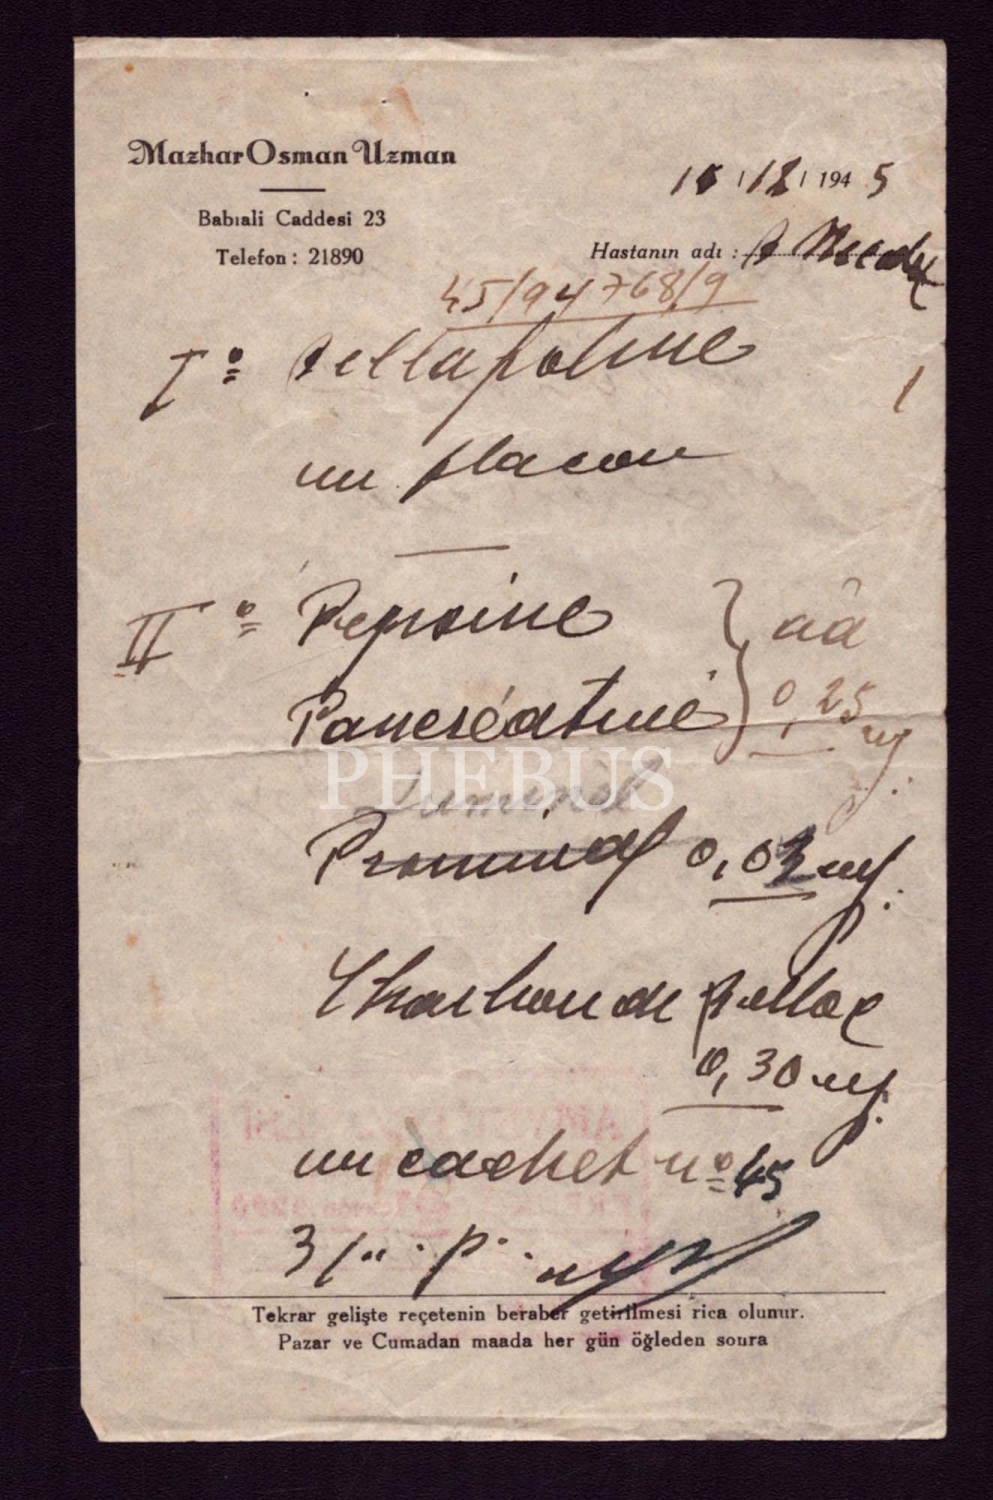 Mazhar Osman Uzman
Babıali Caddesi 23
Telefon : 21890
/ 12 / 194 5
Hastanın adı :
45/94768/9
I º Bellafoline
1
un flacon
II º Pepsine } ãã
Pancréatine } 0,25 cg.
PHEBUS
Luminal
Prominal 0,03 cg.
Charbon de Belloc
0,30 cg.
un cachet nº 45
3 / p.
Tekrar gelişte reçetenin beraber getirilmesi rica olunur.
Pazar ve Cumadan maada her gün öğleden sonra